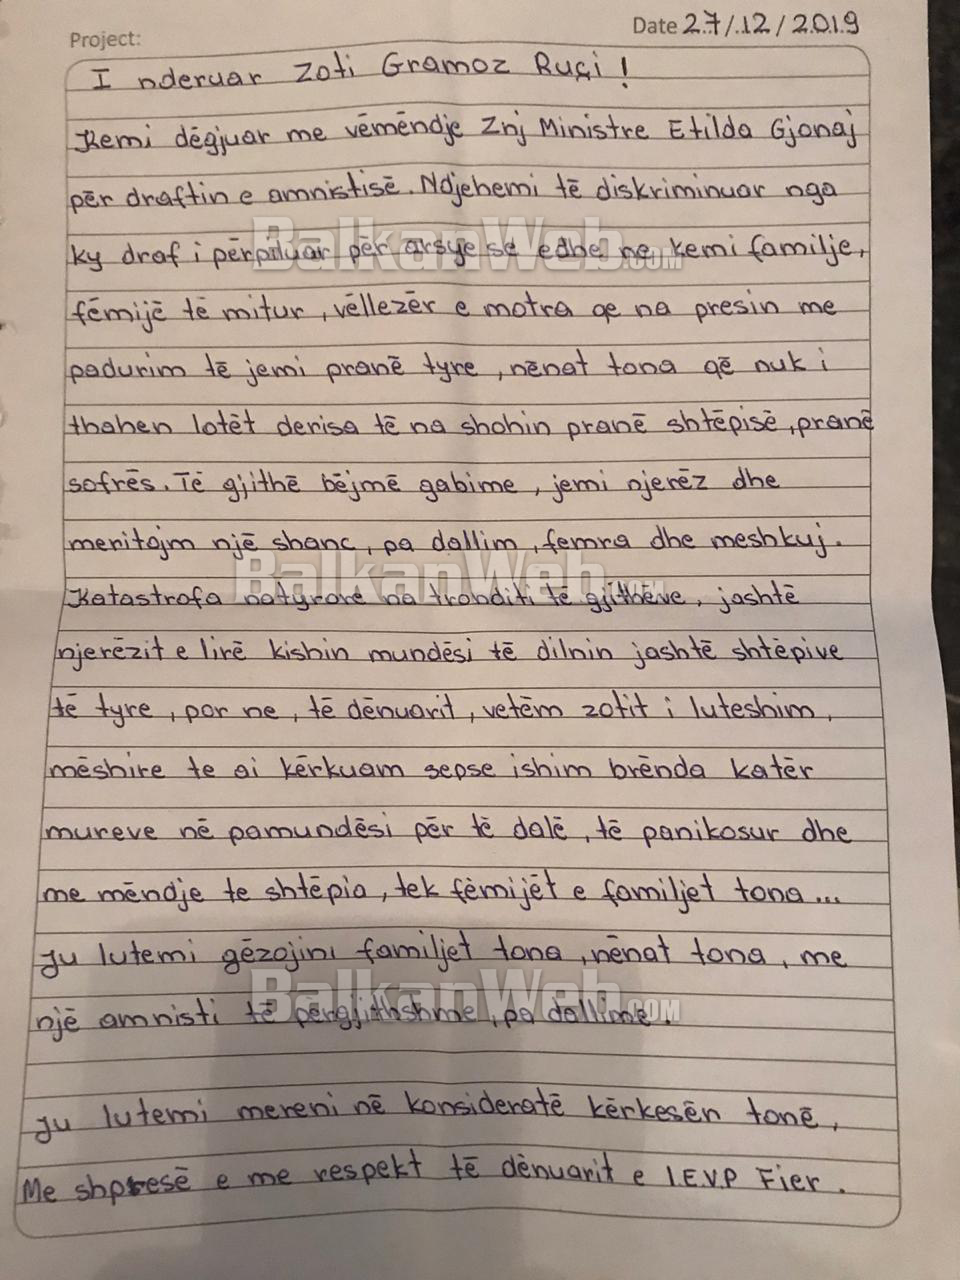 Project:
Date 27/12/2019
I nderuar Zoti Gramoz Ruçi!
Kemi dëgjuar me vëmëndje Znj Ministre Etilda Gjonaj
për draftin e amnistisë. Ndjehemi të diskriminuar nga
ky draf i përpiluar për arsye se edhe ne kemi familje,
fëmijë të mitur, vëllezër e motra qe na presin me
padurim të jemi pranë tyre, nënat tona që nuk i
thahen lotët derisa të na shohin pranë shtëpisë, pranë
sofrës. Të gjithë bëjmë gabime, jemi njerëz dhe
meritojm një shanc, pa dallim, femra dhe meshkuj.
Katastrofa natyrore na tronditi të gjithëve, jashtë
njerëzit e lirë kishin mundësi të dilnin jashtë shtëpive
të tyre, por ne, të dënuarit, vetëm zotit i luteshim,
mëshire te ai kërkuam sepse ishim brënda katër
mureve në pamundësi për të dalë, të panikosur dhe
me mëndje te shtëpia, tek fëmijët e familjet tona...
Ju lutemi gëzojini familjet tona, nënat tona, me
një amnisti të përgjithshme, pa dallime.
Ju lutemi mereni në konsideratë kërkesën tonë,
Me shpresë e me respekt të dënuarit e I.E.V.P Fier.
BalkanWeb.COM
BalkanWeb.COM
BalkanWeb.COM